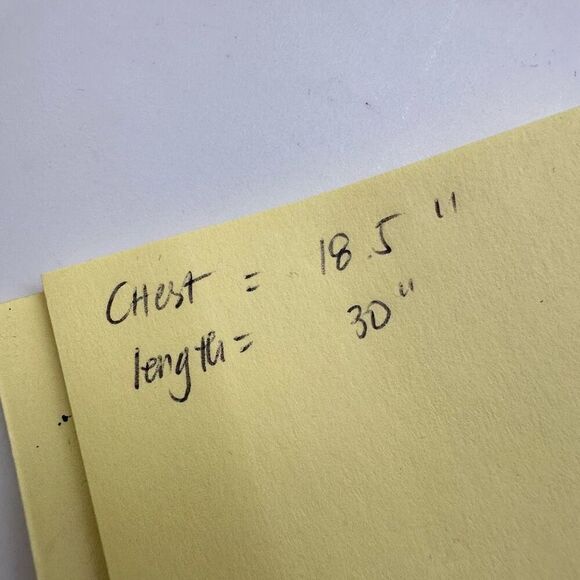 CHest = 18.5 "
length = 30 "